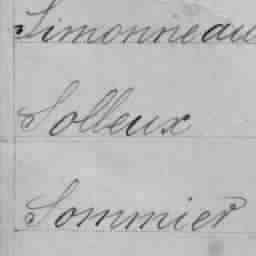 Simonneau
Solleux
Sommier